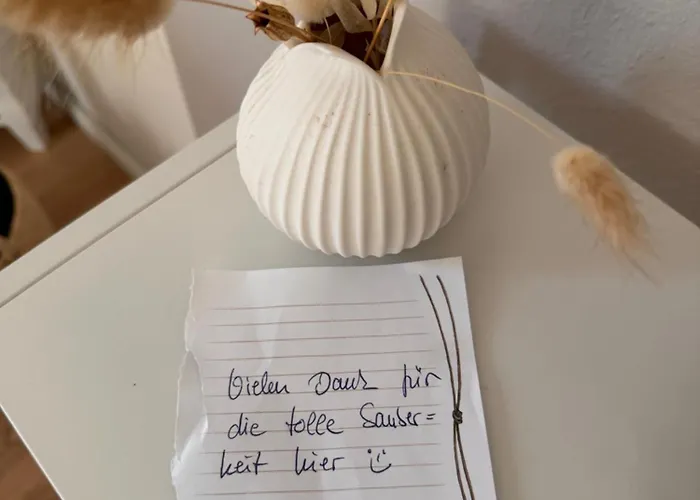 Vielen Dank für
die tolle Sauber=
keit hier :)